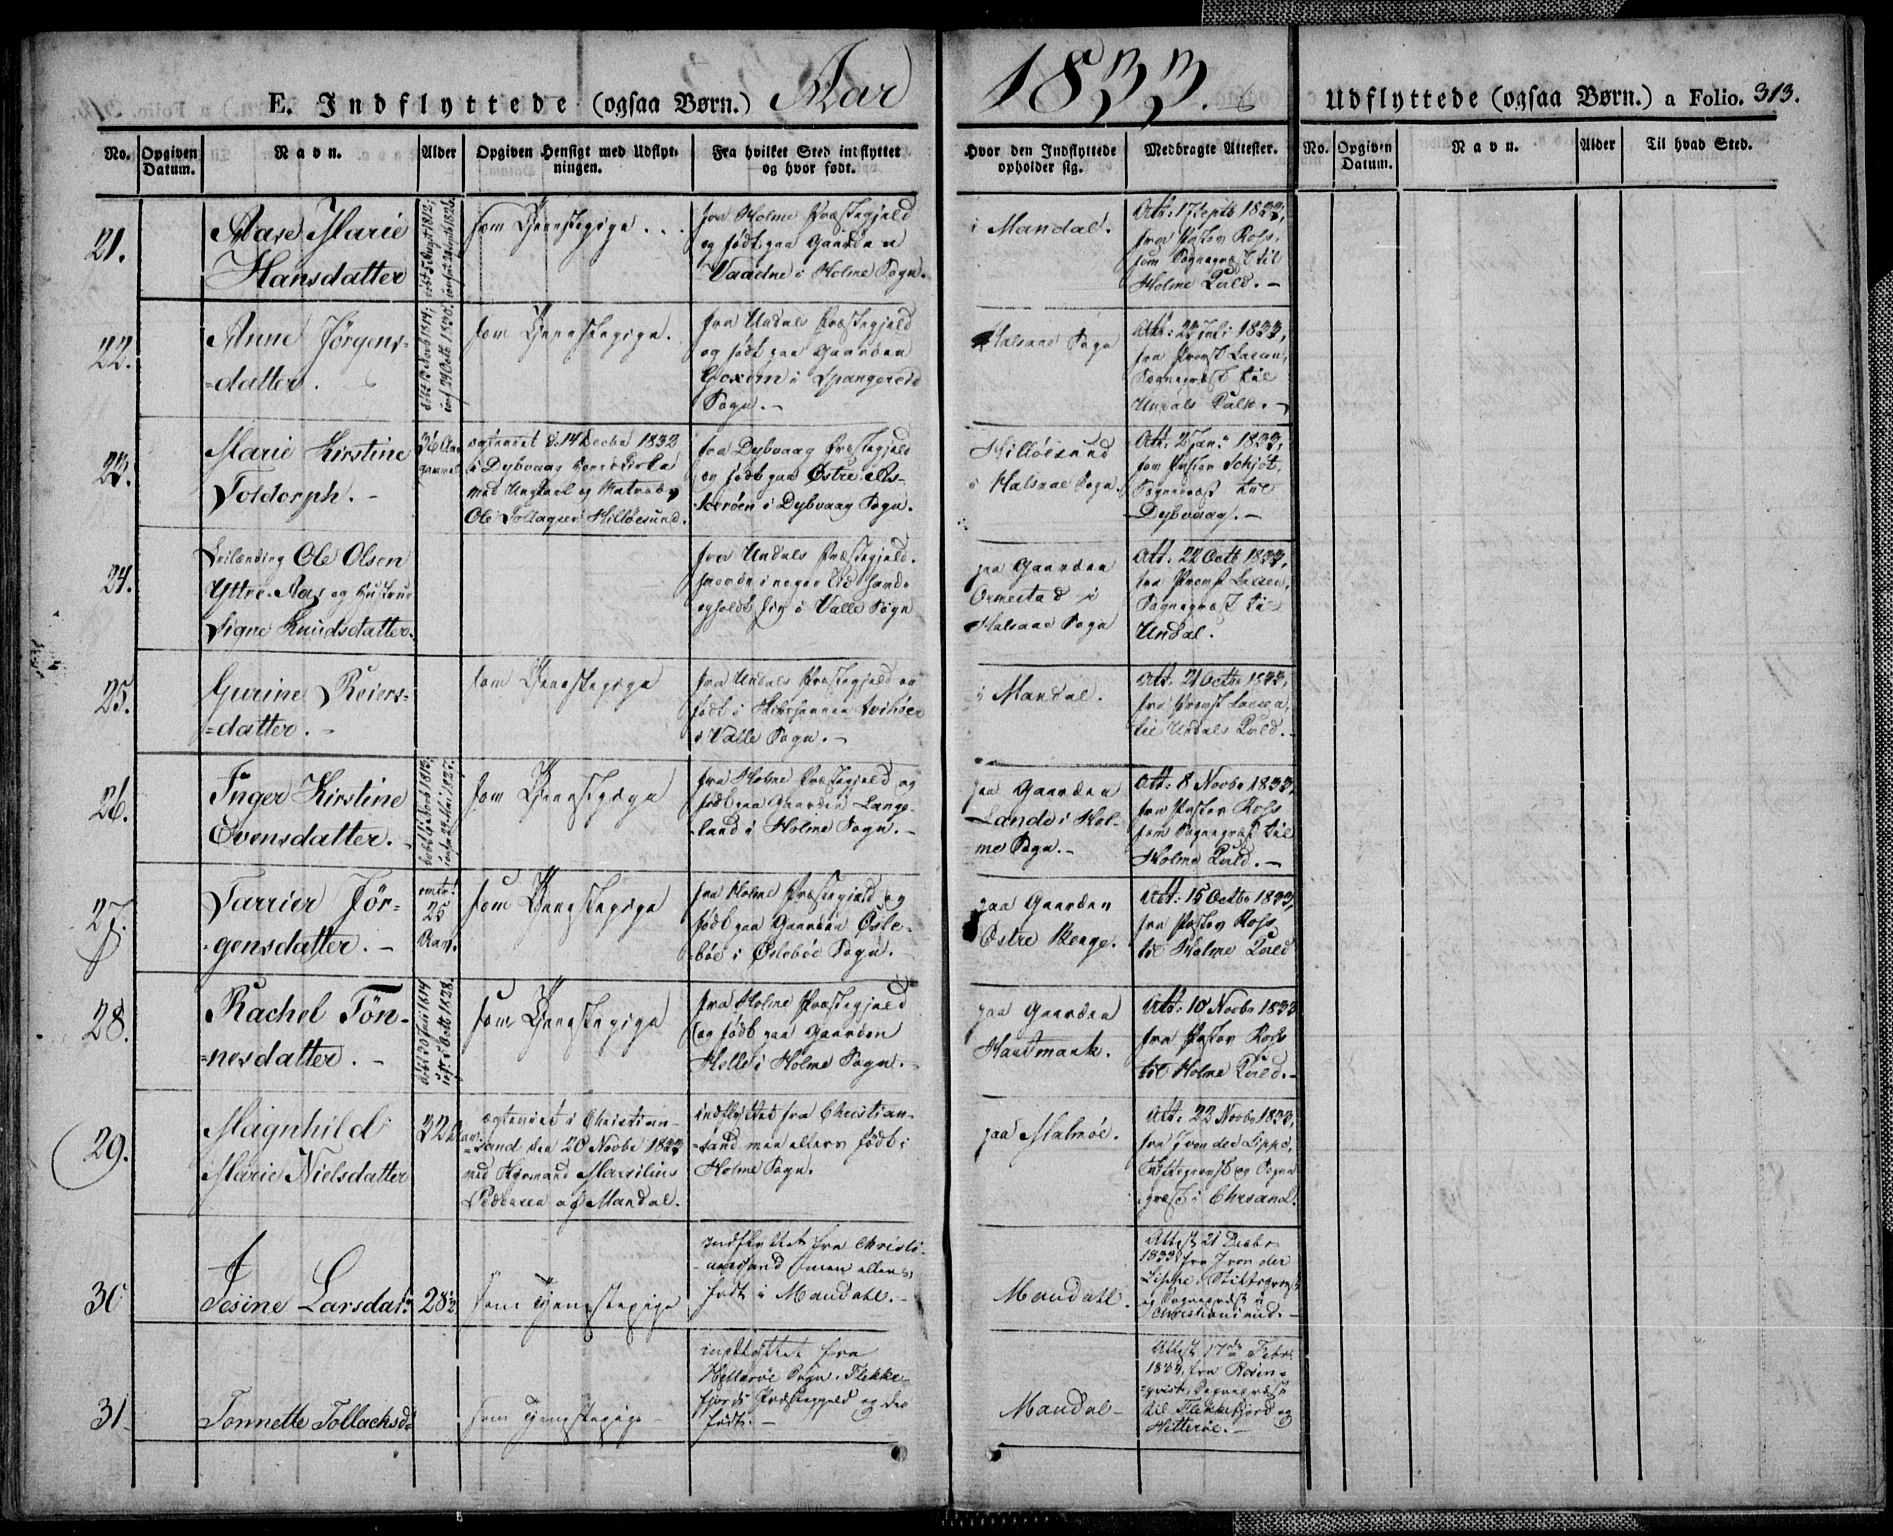 E. Indflyttede (ogsaa Børn.) Aar 1833. Udflyttede (ogsaa Børn.) a Folio. 313.
No. Opgiven Datum. Navn. Alder Opgiven Hensigt med Udflytningen. Fra hvilket Sted indflyttet og hvor født. Hvor den Indflyttede opholder sig. Medbragte Attester. No. Opgiven Datum. Navn. Alder Til hvad Sted.
21.
Aase Marie
Hansdatter
som Tjenestepige
fra Holme Præstegjeld
og født paa Gaarden
i Holme Sogn.
i Mandal.
Att: 17 Septb 1833,
fra Pastor Ross,
som Sognepræst til
Holme Præld. -
22.
Anne Jörgens-
=datter.
som Tjenestepige.
fra Undals Præstegjeld
og født paa Gaarden
i Spangereid
Sogn. -
Halsaae Sogn
Juli 1833,
fra Provst Lassen,
Sognepræst til
Undals Præld. -
23.
Marie Kirstine
Toldorph. -
36 Aar
gammel
ægteviet d. 14 Decbr 1832
i Dybvaag
med Ungkarl og Matros
Ole i Hilløesund.
fra Dybvaag Præstegjeld
og født paa Østre Als-
-kerøen i Dybvaag Sogn.
Hilløesund
i Halsaae Sogn.
1833,
fra Pastor Schjöt,
Sognepræst til
Dybvaag. -
24.
Ole Olsen
Yttre Aas og Hustrue
Signe Knudsdatter.
fra Undals Præstegjeld,
hvor de i nogen Tid havde
opholdt sig i Valle Sogn
paa Gaarden
Ormestad i
Halsaae Sogn
Att: 22 Octb 1833,
fra Provst Lassen,
Sognepræst til
Undal.
25.
Gurine Reiers-
=datter. -
som Tjenestepige
fra Undals Præstegjeld og
født i
i Valle Sogn. -
i Mandal.
Att: 21 Octbr 1833,
fra Provst Lassen,
til Undals Præld. -
26.
Inger Kirstine
Evensdatter. -
som Tjenestepige
fra Holme Præstegjeld og
født paa Gaarden Lange-
-land i Holme Sogn. -
paa Gaarden
Lande i Hol-
me Sogn. -
Att: 8 Novbr 1833,
fra Pastor Ross
som Sognepræst til
Holme Præld. -
27.
Tarrier Jör-
-gensdatter. -
omtr:
25
Aar.
som Tjenestepige
fra Holme Præstegjeld og
født paa Gaarden Øsle-
-bøe i Øslebøe Sogn. -
paa Gaarden
Østre Berge.
Att: 15 Octbr 1833,
fra Pastor Ross
til Holme Præld
28.
Rachel Tön-
=nesdatter. -
som Tjenestepige
fra Holme Præstegjeld
og født paa Gaarden
Holle i Holme Sogn. -
paa Gaarden
Hausmark.
Att: 10 Novbr 1833
fra Pastor Ross
til Holme Præld. -
29.
Magnhild
Marie Nielsdatter
32 Aar
ægteviet i Christian-
=sand den 20 Novbr 1833
med Kjøbmand Marsilius
Pedersen af Mandal.
indflyttet fra Christian-
-sand men ellers født i
Holme Sogn.
paa Malmöe.
Att: 23 Novbr 1833,
fra J von der Lippe,
Stiftsprovst og Sogne
præst i Chrsand.
30
Josine Larsdatr
28½
som Tjenestepige
indflyttet fra Christi-
-ansand men ellers
født i Mandal. -
Mandal.
Attest 21 Decbr
1833 fra J von der
Lippe, Stiftsprovst
og Sognepræst i
Christiansand. -
31
Tonnette Tollachsd:
som Tjenestepige -
indflyttet fra
Hitterøe Sogn, Flekke-
fjords Præstegjeld og der
født. -
Mandal -
Attest 17de Febr.
fra Rosen-
=qvist, Sognepræst
til Flekkefjord og
Hitterøe. -